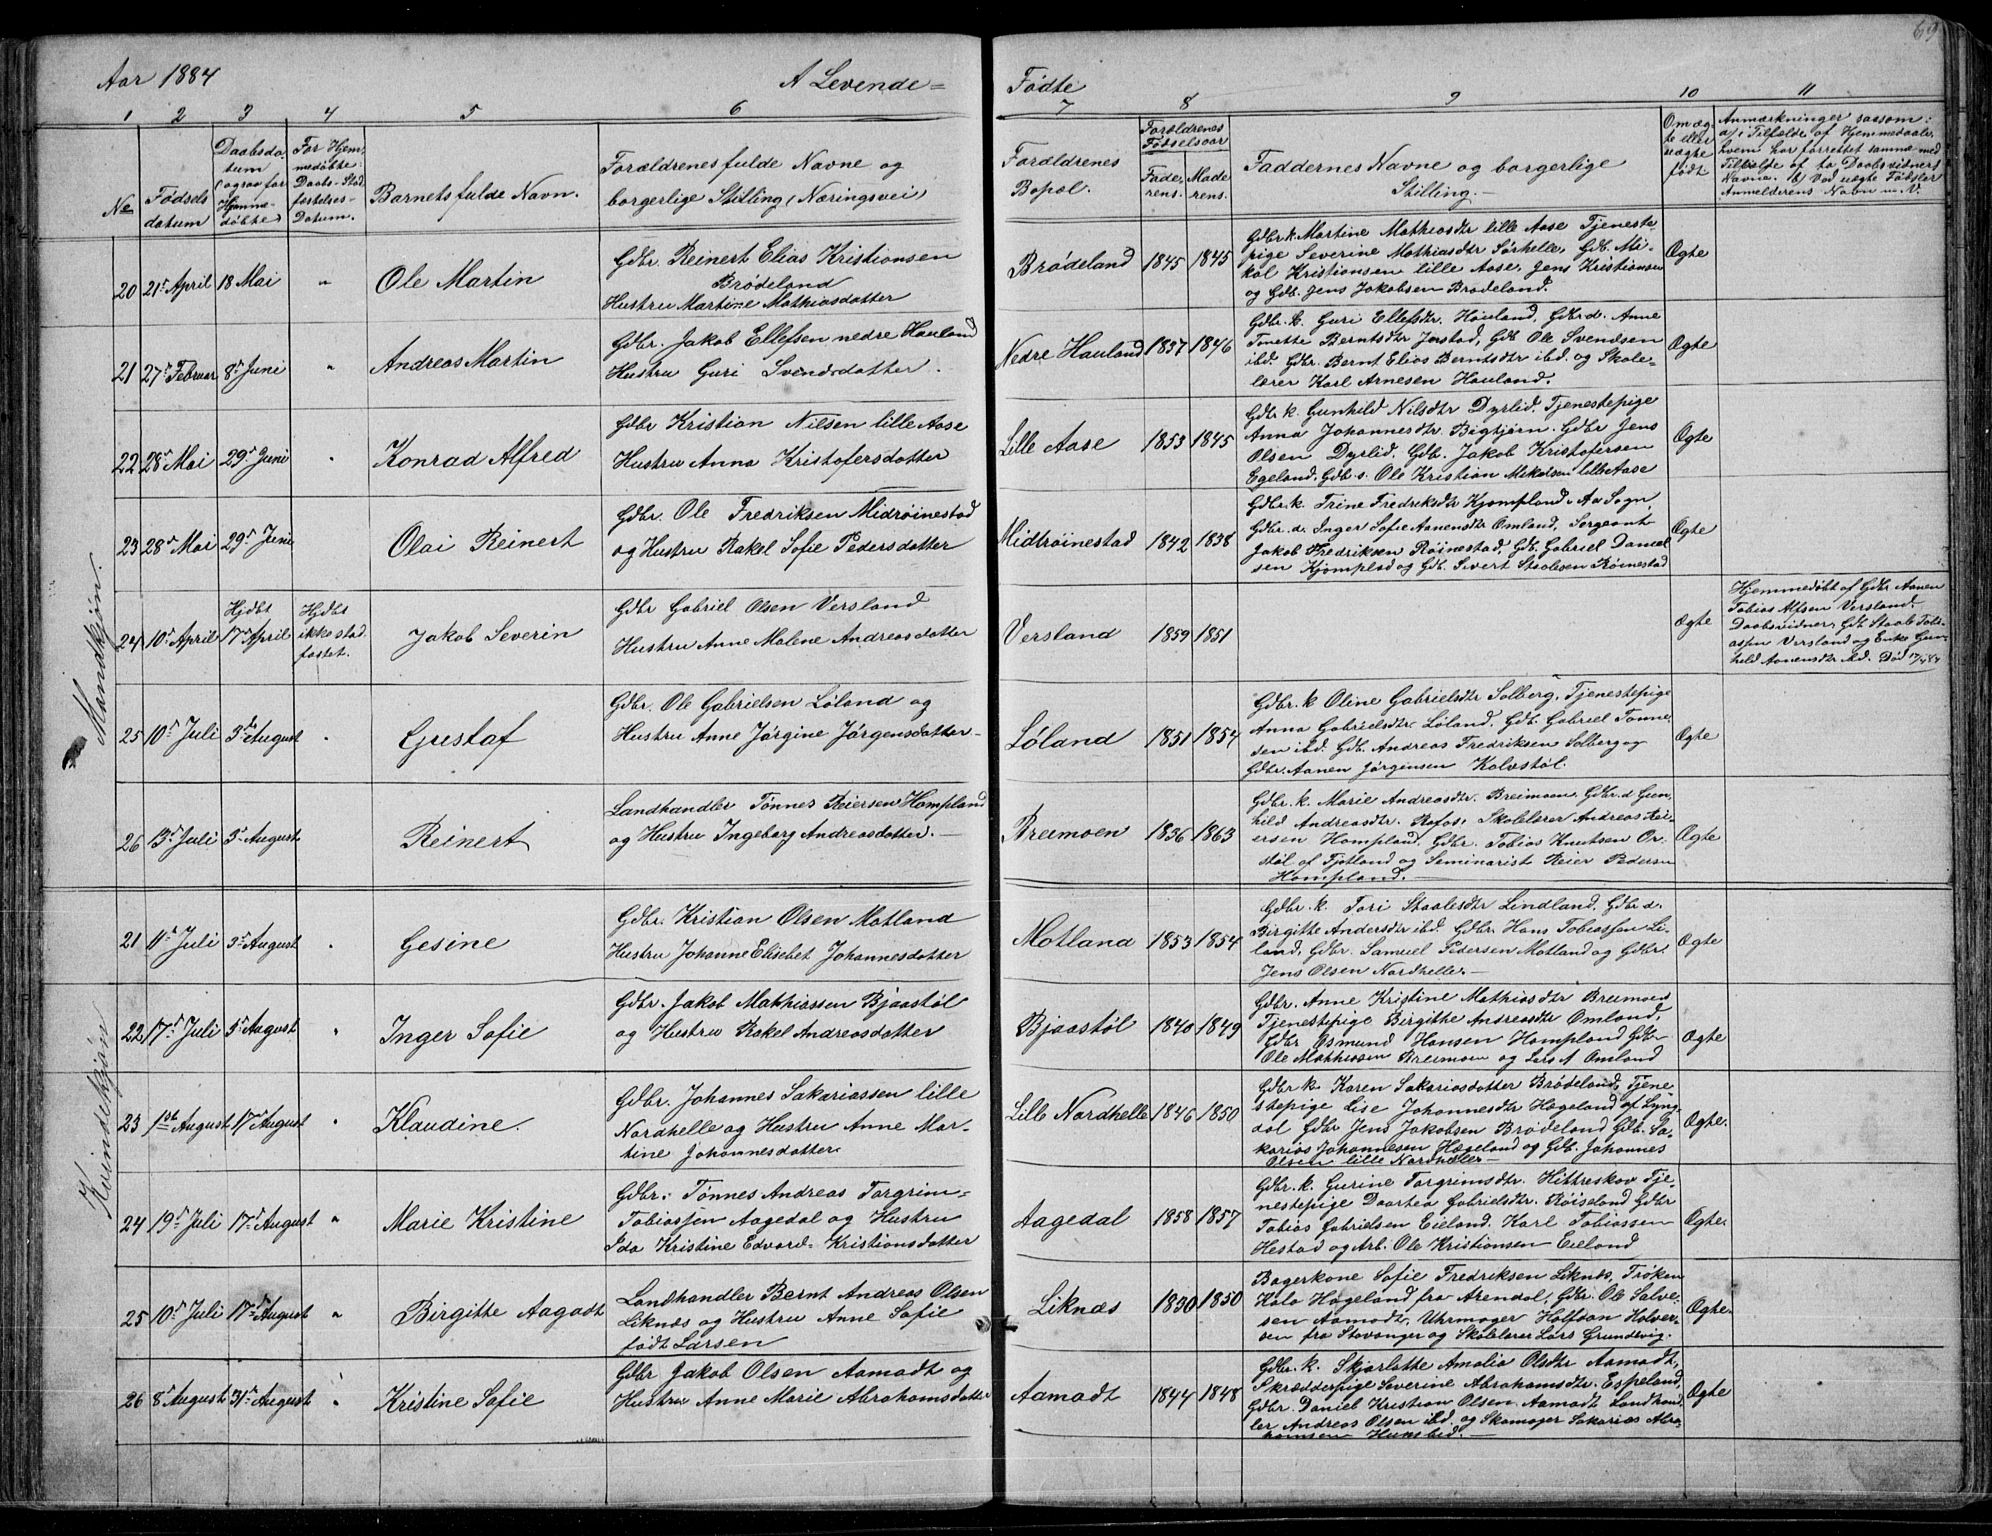 69
Aar 1884
A Levende=
Fødte
1 2 3 4 5 6 7 8 9 10 11
№
Fødsels
datum
Daabsda-
tum
(ogsaa for
Hjemme-
døbte)
For Hjem-
medøbte:
Daabs-Stad-
festelses-
Datum.
Barnets fulde Navn.
Forældrenes fulde Navne og
borgerlige Stilling, (Næringsvei)
Forældrenes
Bopæl.
Forældrenes
Fødselsaar
Fade-
rens.
Mode-
rens.
Faddernes Navne og borgerlige
Stilling.
Om æg-
te eller
uægte
født
Anmærkninger saasom:
a) i Tilfælde af Hjemmedaab:
hvem har forrettet samme med
Tilkjølpe af to Daabsvidners
Navne. b) Ved uægte Fødsler
Anmelderens Navn m. V.
Mandkjøn.
20 21de April 18 Mai " Ole Martin
Gdbr. Reinert Elias Kristiansen
Brødeland
Hustru Martine Mathiasdatter
Brødeland 1845 1845
Gdbr.k. Martine Mathiasdtr lille Aase Tjeneste
pige Severine Mathiasdtr Sørhelle, Gdb. Mi-
kal Kristiansen lille Aase, Jens Kristiansen
og Gdb. Jens Jakobsen Brødeland.
Ægte
21 27de Februar 8de Juni " Andreas Martin
Gdbr. Jakob Ellefsen nedre Hauland
Hustru Guri Svendsdatter.
Nedre Hauland 1837 1846
Gdbr. k. Guri Ellefsdtr. Hauland, Gdbr.d. Anne
Tonette Berntsdtr Jerstad, Gdb Ole Svendsen
ibd. Gdbr. Bernt Elias Berntsdtr ibd. og Skole-
lærer Karl Arnesen Hauland.
Ægte
22 28de Mai 29de Juni " Konrad Alfred
Gdbr Kristian Nilsen lille Aase
Hustru Anna Kristofersdatter
Lille Aase 1853 1845
Gdbr k. Gunhild Nilsdtr Dyrlid, Tjenestepige
Anna Johannesdtr Bigtjørn. Gdbr Jens
Olsen Dyrlid. Gdb. Jakob Kristofersen
Egeland, Gdb. s. Ole Kristian Mikalsen lille Aase
Ægte
23 28de Mai 29de Juni Olai Reinert
Gdbr. Ole Fredriksen Midrøinestad
og Hustru Rakel Sofie Pedersdatter
Midtrøinestad 1842 1838
Gdbr.k. Trine Fredriksdtr Kjømpland, Aa Sogn,
Gdbr. d. Inger Sofie Aanensdtr Omland, Sergeant
Jakob Fredriksen Røinestad, Gdb. Gabriel Daniel
sen Kjømplad og Gdb. Sivert Staalesen Røinestad
Ægte
24 10de April
Hjdbt
17de April
Hjdbt
ikke stad
festet.
Jakob Severin
Gdbr Gabriel Olsen Versland
Hustru Anne Malene Andreasdatter
Versland 1859 1851
Ægte
Hjemmedøbt af Gdbr Aanen
Tobias Alfsen Versland.
Daabsvidner, Gdb. Staale Tobi-
assen Versland og Enke Gun-
hild Aanensdtr ibd. Død 17/4 84
25 10de Juli 3de August " Gustaf
Gdbr. Ole Gabrielsen Løland og
Hustru Anne Jørgine Jørgensdatter
Løland 1851 1854
Gdbr. k Oline Gabrielsdtr Solberg, Tjenestepige
Anna Gabrielsdtr Løland. Gdb. Gabriel Tønne-
sen ibd. Gdb. Andreas Fredriksen Solberg og
Gdbr. Aanen Jørgensen Kalvstøl.
Ægte
26 13de Juli 3de August Reinert
Landhandler Tønnes Reiersen Hompland
og Hustru Ingeborg Andreasdatter.
Breimoen 1836 1863
Gdbr. k. Marie Andreasdtr. Breimoen, Gdbr.d Gun-
hild Andreasdtr. Rafos, Skolelærer Andreas Rei-
ersen Hompland. Gdbr. Tobias Knutsen Or-
støl af Fjotland og Seminarist Reier Pedersen
Hompland.
Ægte
Kvindekjøn
21 11de Juli 3de August " Gesine
Gdbr. Kristian Olsen Motland
Hustru Johanne Elisebet Johannesdatter
Motland 1853 1854
Gdbr. k. Tori Staalesdtr Lindland, Gdbr d.
Birgitte Andersdtr ibd. Gdbr. Hans Tobiassen Li-
land, Gdbr. Samuel Pedersen Motland og Gdbr.
Jens Olsen Nordhelle.
Ægte
22 17de Juli 3de August " Inger Sofie
Gdbr. Jakob Mathiassen Bjaastøl
og Hustru Rakel Andreasdatter
Bjaastøl 1840 1849
Gdbr. Anne Kristine Mathiasdtr Breimoen
Tjenestepige Birgitte Andreasdtr Omland,
Gdbr Osmund Hansen Hompland Gdb-
Ole Mathiassen Breimoen og Lars A Omland
Ægte
23 1ste August 17de August " Klaudine.
Gdbr. Johannes Sakariassen lille
Nordhelle og Hustru Anne Mar-
tine Johannesdatter
Lille Nordhelle 1846 1850
Gdbr k. Karen Sakariasdatter Brødeland, Tjene-
stepige Lise Johannesdtr Hægeland af Lyng-
dal Gdbr Jens Jakobsen Brødeland Gdb. Sa-
karias Johannesen Hægeland og Gdb. Johannes
Olsen lille Nordhelle
Ægte.
24 19de Juli 17de August " Marie Kristine
Gdbr. Tønnes Andreas Torgrim-
Tobiassen Aagedal og Hustru
Ida Kristine Edvard-Kristiansdatter
Aagedal 1858 1857
Gdbr. k. Gurine Torgrimsdtr. Hittreskov Tje-
nestepige Daartea Gabrielsdtr. Røiseland Gdbr
Tobias Gabrielsen Eieland. Karl Tobiassen
Hestad og Arb. Ole Kristiansen Eieland
Ægte.
25 10de Juli 17de August " Birgitte Aagodt
Landhandler Bernt Andreas Olsen
Liknæs og Hustru Anne Sofie
født Larsen
Liknæs 1850 1850
Bagerkone Sofie Fredriksen Liknæs, Frøken
Kala Hageland fra Arendal, Gdbr. Ole Salve-
sen Aamodt, Uhrmager Halfdan Halvor-
sen fra Stavanger og Skolelærer Lars Grundevig.
Ægte.
26 8de August 31te August " Kristine Sofie
Gdbr Jakob Olsen Aamodt og
Hustru Anne Marie Abrahamsdatter
Aamodt 1844 1848
Gdbr. k. Skjarlotte Amalia Olsdtr Aamodt,
Skrædderpige Severine Abrahamsdtr. Espeland,
Gdbr. Daniel Kristian Olsen Aamodt Landhand-
ler Andreas Olsen ibd. og Skomager Sakarias Abra-
hamsen Hunsbed.
Ægte